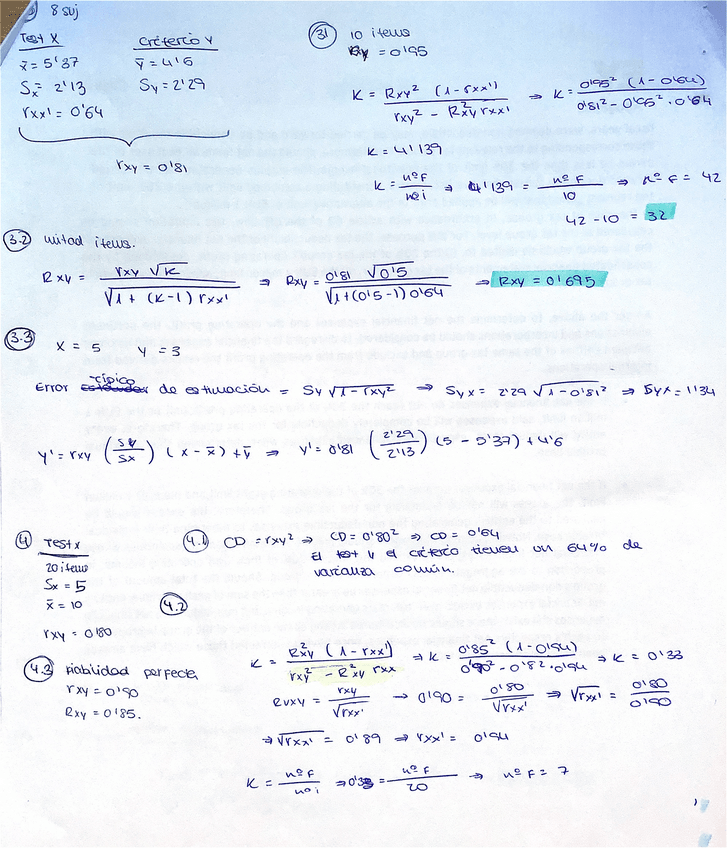 8 suj
Test X
x̄ = 5'37
Sx = 2'13
rxx' = 0'64
Criterio Y
ȳ = 4'6
Sy = 2'29
rxy = 0'81
3.1 10 items
Rxy = 0'95
K = Rxy² (1 - rxx') / rxy² - R²xy rxx' ⇒ K = 0'95² (1 - 0'64) / 0'81² - 0'95² · 0'64
K = 4'139
K = nº F / nº i ⇒ 4'139 = nº F / 10 ⇒ nº F = 42
42 - 10 = 32
3.2 mitad items.
Rxy = rxy √K / √1 + (K-1) rxx' ⇒ Rxy = 0'81 √0'5 / √1+(0'5-1) 0'64 ⇒ Rxy = 0'695
3.3 X = 5 Y = 3
Error típico de estimación = Sy √1 - rxy² ⇒ Syx = 2'29 √1 - 0'81² ⇒ Syx = 1'34
y' = rxy (Sy / Sx) (x - x̄) + ȳ ⇒ y' = 0'81 (2'29 / 2'13) (5 - 5'37) + 4'6
4 Test X
20 items
Sx = 5
x̄ = 10
rxy = 0'80
4.1 CD = rxy² ⇒ CD = 0'80² ⇒ CD = 0'64
El test y el criterio tienen un 64% de
varianza común.
4.2
4.3 Fiabilidad perfecta
rxy = 0'90
Rxy = 0'85.
K = R²xy (1 - rxx') / rxy² - R²xy rxx ⇒ K = 0'85² (1 - 0'94) / 0'90² - 0'8² · 0'94 ⇒ K = 0'33
Rvxy = rxy / √rxx' → 0'90 = 0'80 / √rxx' ⇒ √rxx' = 0'80 / 0'90
⇒ √rxx' = 0'89 ⇒ rxx' = 0'94
K = nº F / nº i ⇒ 0'33 = nº F / 20 ⇒ nº F = 7